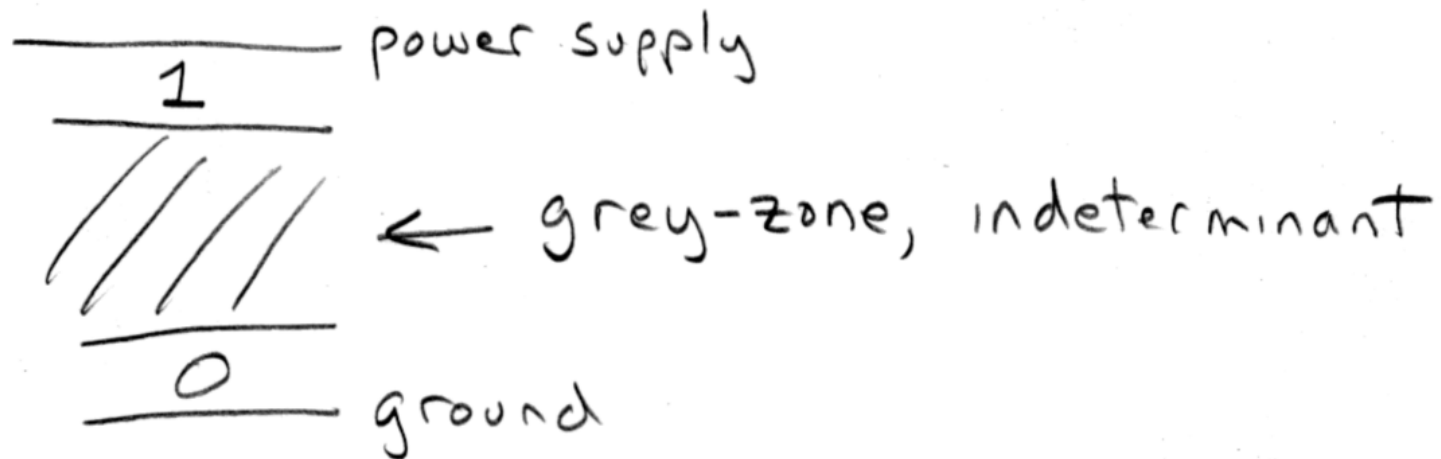 power supply
1
grey-zone, indeterminant
0
ground